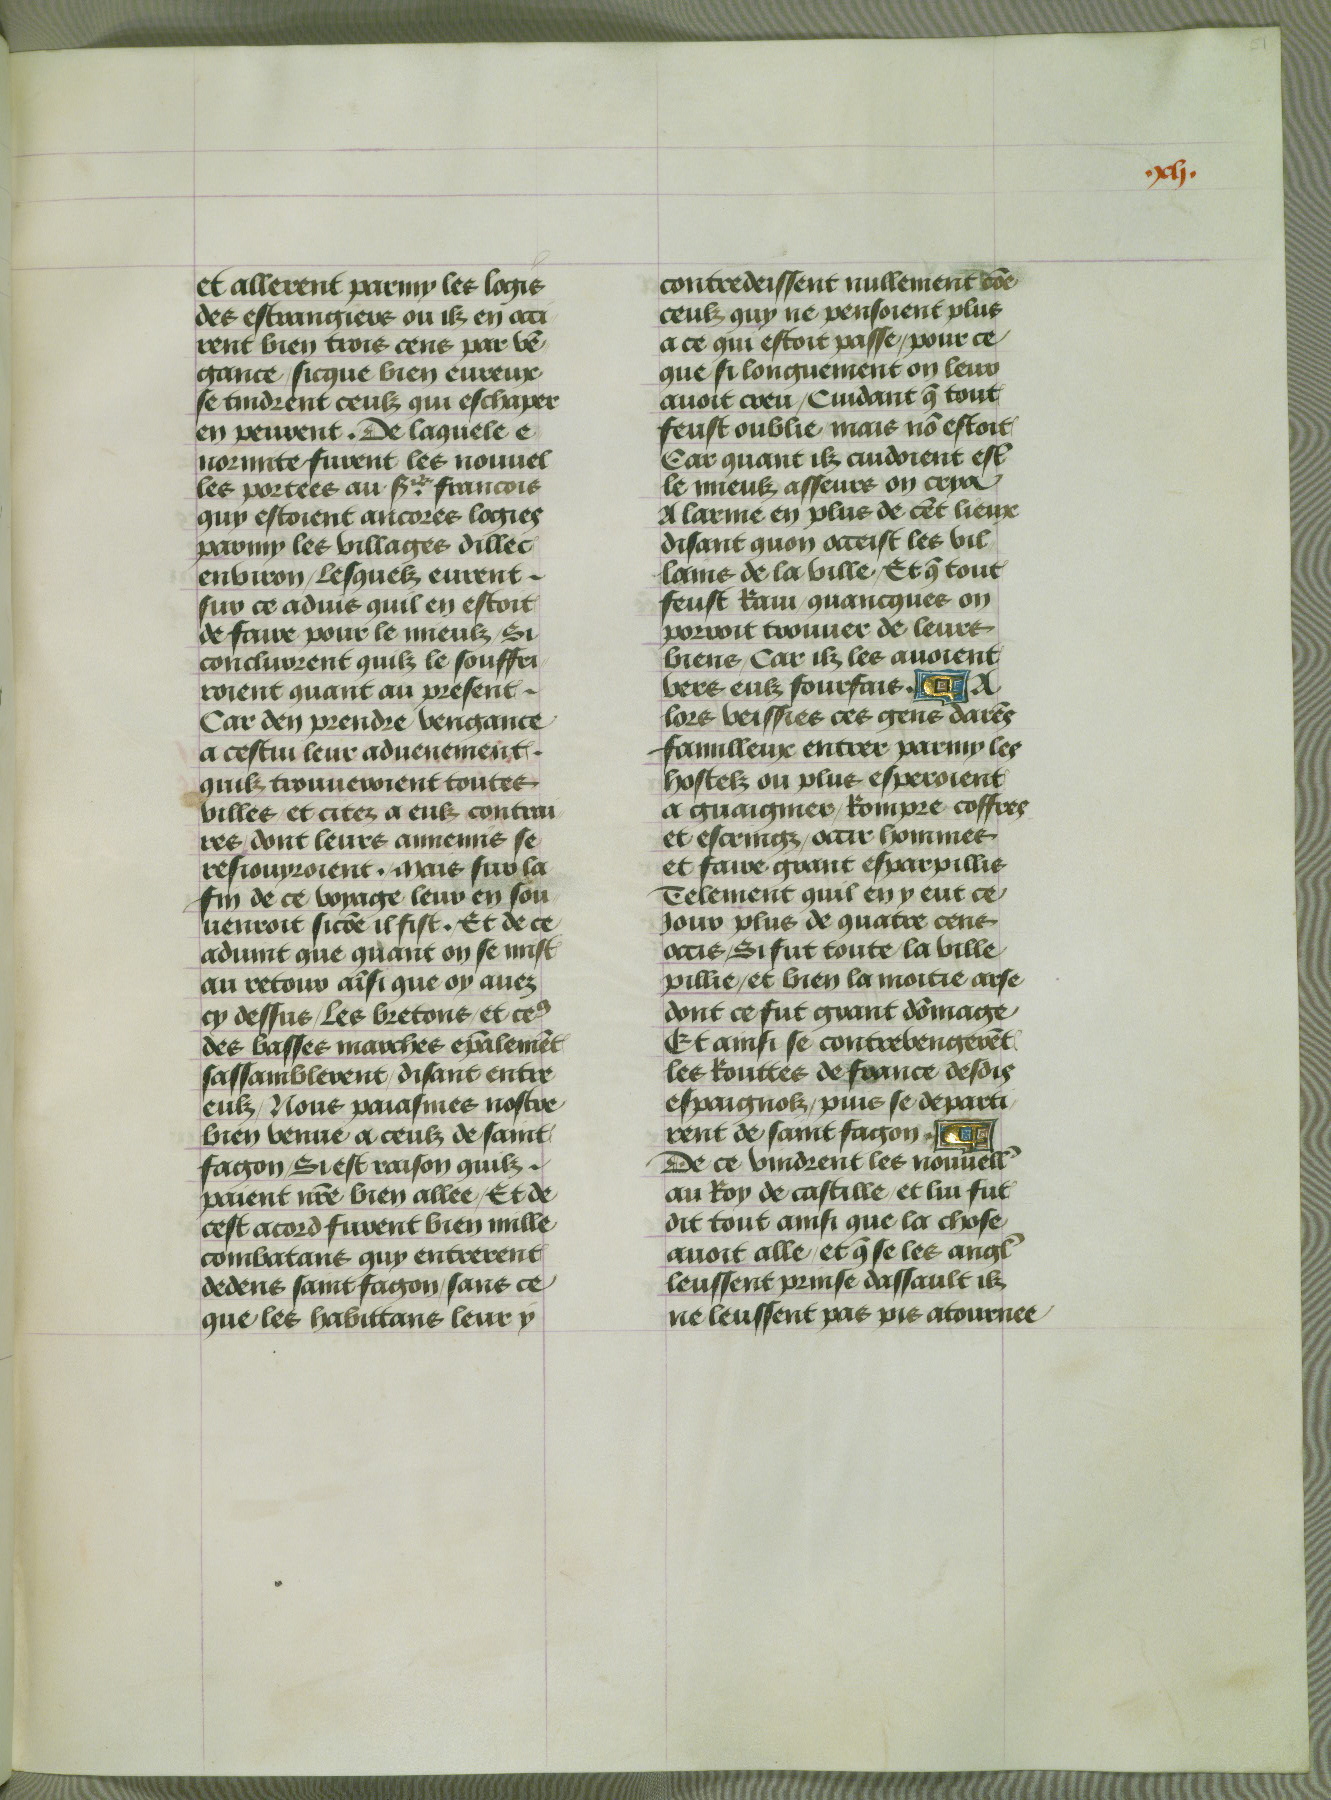 .xlj.
et allerent parmy les logis
des estrangiers ou ilz en oci
rent bien trois cens par vē
gance / sicque bien eureux
se tindrent ceulz qui eschaper
en peurent . De laquele e
normite furent les nouuel
les portees au francois
quy estoient ancores logies
parmy les villages dillec
enuiron / Lesquelz eurent .
sur ce aduis quil en estoit
de faire pour le mieulz / Si
conclurent quilz le souffri
roient quant au present .
Car den prendre vengance
a cestui leur aduenement .
quilz trouueroient toutes
villes et citez a eulz contrai
res / dont leurs annemis se
resiouyroient . Mais sur la
fin de ce voyage leur en sou
uenroit sicōe il fist . Et de ce
aduint que quant on se mist
au retour aīsi que oy auez
cy dessus / Les bretons et ceꝰ
des basses marches ep̄alemēt
sassamblerent / disant entre
eulz / Nous paiasmes nostre
bien venue a ceulz de saint
fagon / Si est raison quilz .
paient nr̄e bien allee / Et de
cest acord furent bien mille
combatans quy entrerent
dedens saint fagon / sans ce
que les habittans leur y
contredeissent nullement cōe
ceulz quy ne pensoient plus
a ce qui estoit passe / pour ce
que si longuement on leur
auoit creu / Cuidant q̄ tout
feust oublie mais nō estoit
Car quant ilz cuidoient est̄
le mieulz asseurs on crya
A larme en plus de cēt lieux
disant quon occeist les vil
lains de la ville / Et q̄ tout
feust Raui quancques on
porroit trouuer de leurs
biens / Car ilz les auoient
vers eulz fourfais . A
lors veissies ces gens darēs
familleux entrer parmy les
hostelz ou plus esperoient
a guaignier / Rompre coffres
et escringz / occir hommes
et faire grant esparpillis
Telement quil en y eut ce
Jour plus de quatre cens
occis / Si fut toute la ville
pillie / et bien la moitie arse
dont ce fut grant dōmage
Et ainsi se contrevengerēt
les Routtes de france desdis
espaignolz / puis se departi
rent de saint fagon .
De ce vindrent les nouuellꝰ
au Roy de castille / et lui fut
dit tout ainsi que la chose
auoit alle / et q̄ se les anglꝰ
leussent prinse dassault ilz
ne leussent pas pis atournee